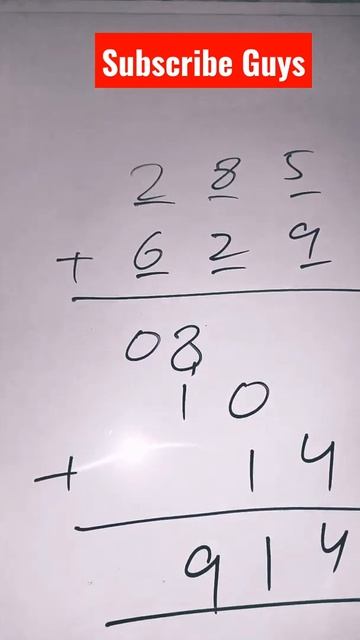 Subscribe Guys
2 8 5
+ 6 2 9
08
1 0
+ 1 4
9 1 4